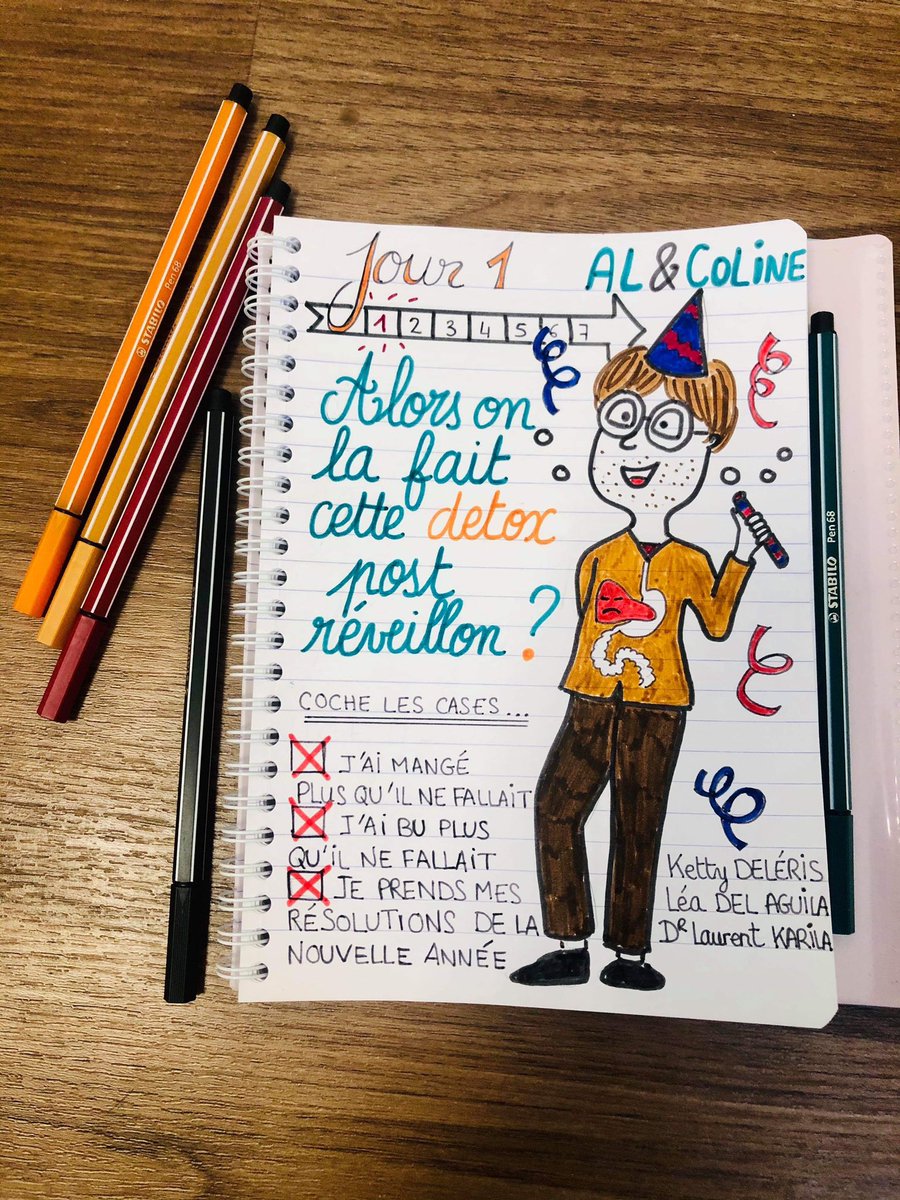 Jour 1
AL & COLINE
1 2 3 4 5 6 7
Alors on
la fait
cette detox
post
réveillon ?
COCHE LES CASES...
J'AI MANGÉ
PLUS QU'IL NE FALLAIT
J'AI BU PLUS
QU'IL NE FALLAIT
JE PRENDS MES
RÉSOLUTIONS DE LA
NOUVELLE ANNÉE
Ketty DELÉRIS
Léa DEL AGUILA
Dr Laurent KARILA
STABILO Pen 68
STABILO Pen 68